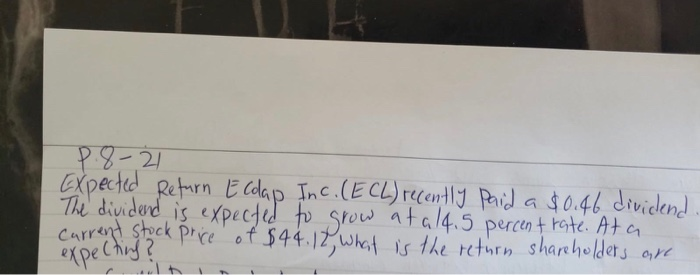 P.8-21
Expected Return Ecolap Inc. (ECL) recently Paid a $0.46 dividend.
The dividend is expected to grow at a 14.5 percent rate. At a
current stock price of $44.12, what is the return shareholders are
expecting?